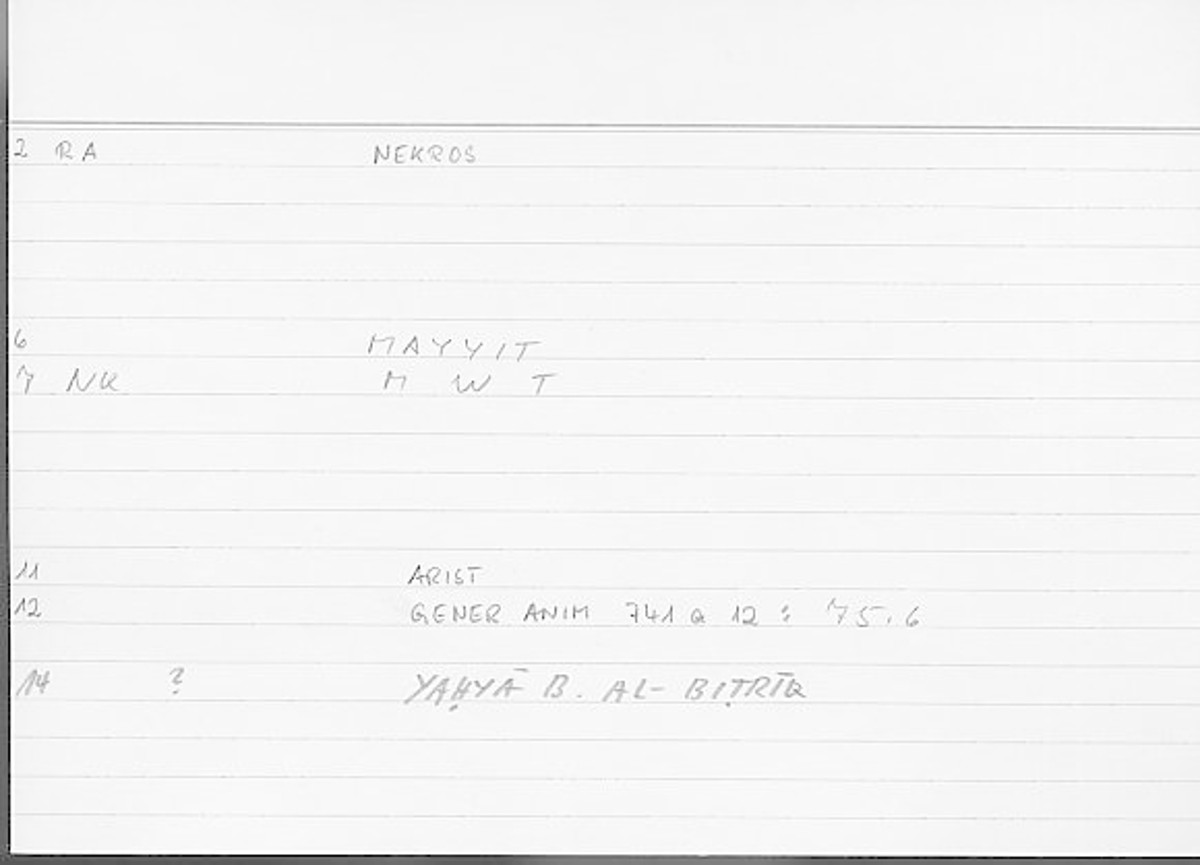 2 RA NEKROS
6 MAYYIT
7 NK M W T
11 ARIST
12 GENER ANIM 741 a 12 : 75.6
14 ? YAḤYĀ B. AL-BIṬRĪQ